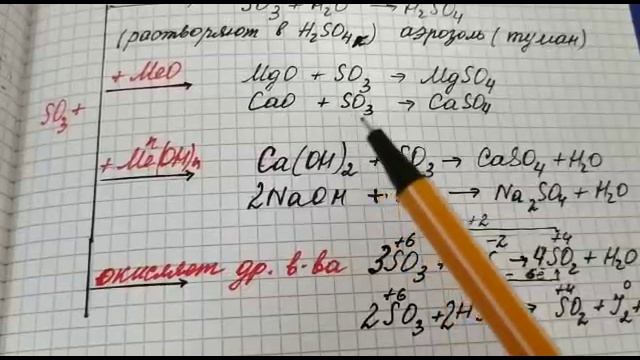 SO₃ + H₂O → H₂SO₄
(растворяют в H₂SO₄ к) аэрозоль (туман)
+ MeO MgO + SO₃ → MgSO₄
SO₃ + CaO + SO₃ → CaSO₄
+ Meⁿ(OH)ₙ Ca(OH)₂ + SO₃ → CaSO₄ + H₂O
2NaOH + → Na₂SO₄ + H₂O
+2
+6 -2 +4
окисляют др. в-ва 3SO₃ → 4SO₂ + H₂O
+6 +4 0
2SO₃ + 2H → SO₂ + J₂ +